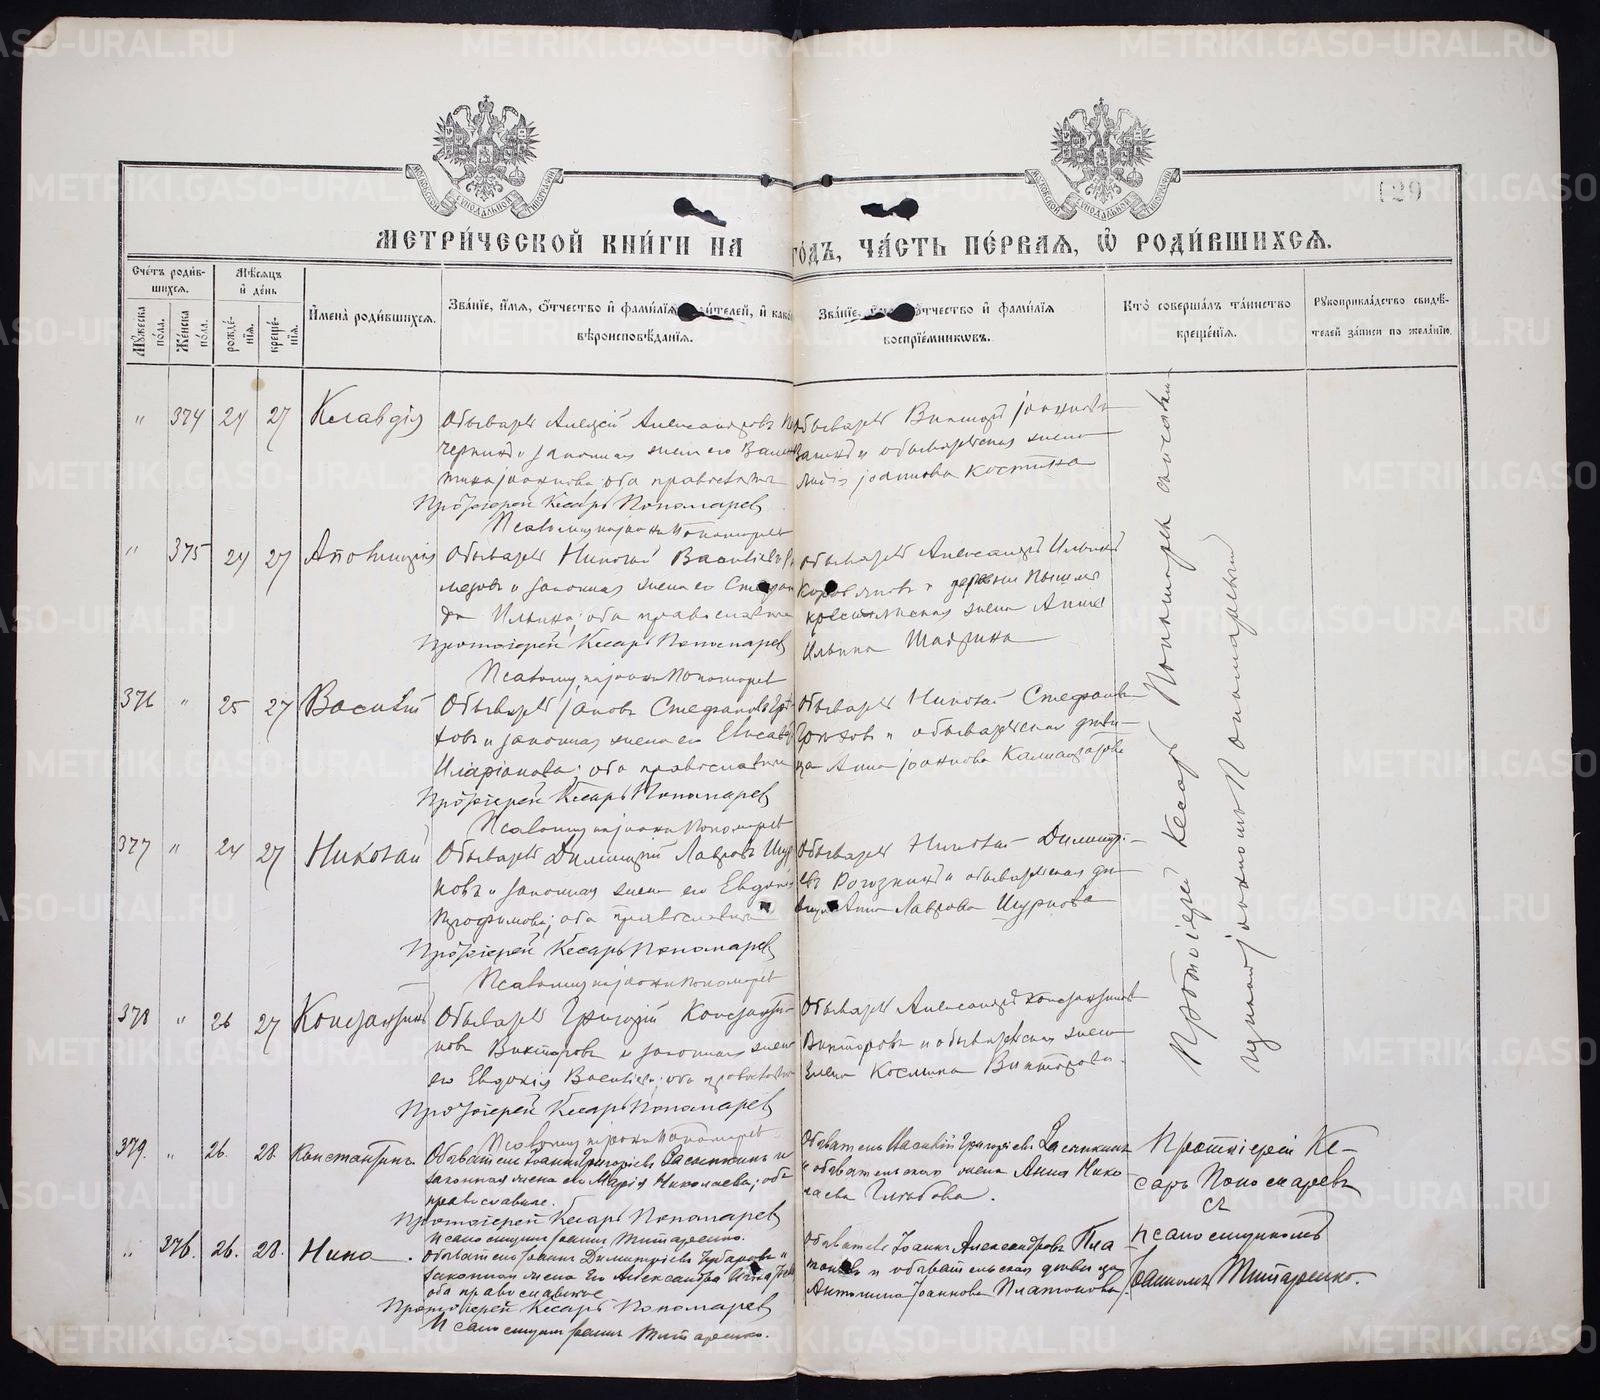 129
МЕТРИ́ЧЕСКОЙ КНИ́ГИ НА ГО́ДЪ, ЧА́СТЬ ПЕ́РВАЯ, Ѡ҆ РОДИ́ВШИХСЯ.
Сче́тъ роди́вшихся.
Мꙋ́жеска по́ла.
Же́нска по́ла.
Мѣ́сяцъ и҆ де́нь
рожде́нїѧ.
креще́нїѧ.
И҆мена̀ роди́вшихся.
Зва́нїе, и҆́мя, о҆́тчество и҆ фами́лїѧ роди́телей, и҆ како́
вѣроисповѣ́данїѧ.
Зва́нїе, о҆́тчество и҆ фами́лїѧ
воспрїе́мникѡвъ.
Кто̀ соверша́лъ та́инство
креще́нїѧ.
Рꙋкоприкла́дство свидѣ́-
телей за́писи по жела́нїю.
" 374 24 27 Клавдія
Обыватель Алексій Александровъ
законная жена его
оба православные
Протоіерей Кесарь Пономаревъ
Псаломщикъ Іоаннъ Пономаревъ
Обыватель Викторъ Іоанновъ
и обывательская жена
Іоаннова Костина
" 375 24 27 Аполлинарія
Обыватель Николай Васильевъ
и законная жена его
Ильина; оба православные
Протоіерей Кесарь Пономаревъ
Псаломщикъ Іоаннъ Пономаревъ
Обыватель Александръ Ильинъ
и деревни Пышмы
крестьянская жена Анна
Ильина
376 " 25 27 Василій
Обыватель Іаковъ Стефановъ
и законная жена его Елисавета
Иларіонова; оба православные
Протоіерей Кесарь Пономаревъ
Псаломщикъ Іоаннъ Пономаревъ
Обыватель Николай Стефановъ
и обывательская дѣви-
ца Анна Іоаннова
377 " 24 27 Николай
Обыватель Димитрій Лавровъ Щур
новъ и законная жена его Евдокія
Трофимова; оба православные
Протоіерей Кесарь Пономаревъ
Псаломщикъ Іоаннъ Пономаревъ
Обыватель Николай Димитрі-
евъ Рогозинъ и обывательская дѣ-
вица Анна Лаврова Щурнова
378 " 26 27 Константинъ
Обыватель Григорій Константи-
новъ Викторовъ и законная жена
его Евдокія Васильева; оба православные
Протоіерей Кесарь Пономаревъ
Псаломщикъ Іоаннъ Пономаревъ
Обыватель Александръ Константиновъ
Викторовъ и обывательская жена
Елена Космина Викторова.
Протоіерей Кесарь Пономаревъ съ псалом-
щикомъ Іоанномъ Пономаревымъ
379. " 26. 28. Константинъ.
Обыватель Іоаннъ Григоріевъ Засыпкинъ и
законная жена его Марія Николаева; оба
православные.
Протоіерей Кесарь Пономаревъ
Псаломщикъ Іоаннъ Титаренко.
Обыватель Василій Григоріевъ Засыпкинъ
и обывательская жена Анна Нико
лаева Глыбова.
Протоіерей Ке-
сарь Пономаревъ
съ
псаломщикомъ
Іоанномъ Титаренко.
" 376. 26. 28. Нина.
Обыватель Іоаннъ Димитріевъ и
законная жена его Александра
оба православные
Протоіерей Кесарь Пономаревъ
Псаломщикъ Іоаннъ Титаренко.
Обыватель Іоаннъ Александровъ Пла
тоновъ и обывательская дѣвица
Антонина Іоаннова Платонова.